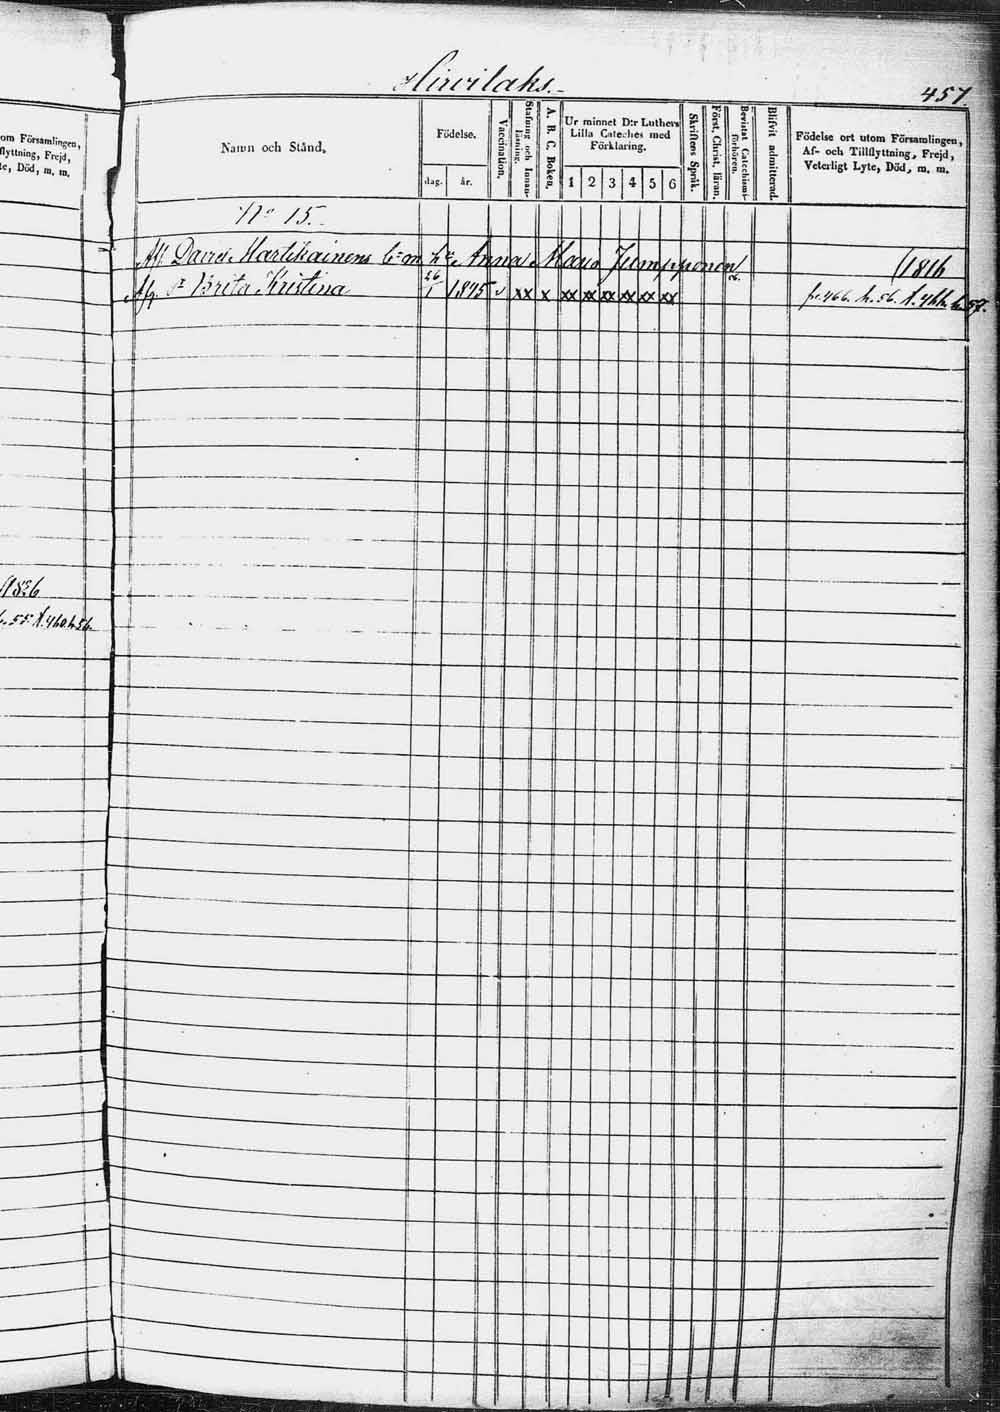 Hirvilaks.
457.
om Församlingen,
flyttning, Frejd,
te, Död, m. m.
Namn och Stånd,
Födelse.
dag.
år.
Vaccination,
Stafning och Innan-
läsning.
A. B. C. Boken,
Ur minnet D:r Luthers
Lilla Cateches med
Förklaring.
1 2 3 4 5 6
Skriftens Språk.
Först, Christ, läran.
Bevistat Catechismi-
förhören.
Blifvit admitterad.
Födelse ort utom Församlingen,
Af- och Tillflyttning, Frejd,
Veterligt Lyte, Död, m. m.
No 15.
David Martikainens Anna Jumpponen
(1816
Brita Kristina 26/1 1845 v xx x xx xx xx xx xx xx
fr. 466. h. 56.
1836